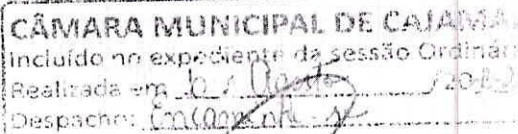 CÂMARA MUNICIPAL DE CAJAMA
Incluído no expediente da sessão Ordinár
Realizada em Agosto /20
Despacho: Encaminhe-se